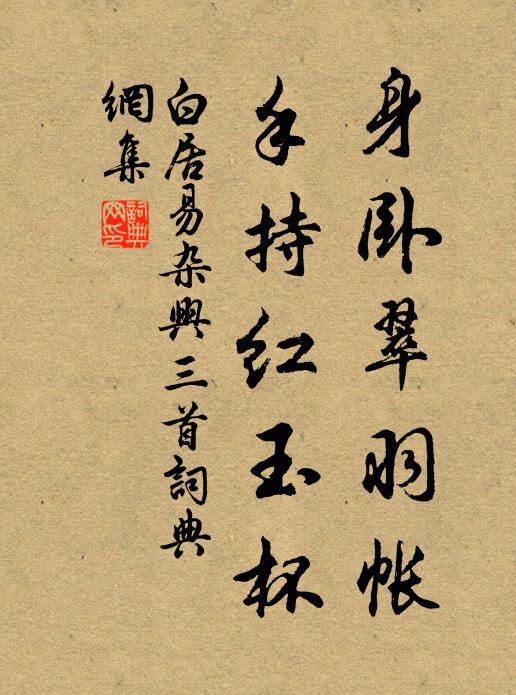 身卧翠羽帐
手持红玉杯
白居易杂興三首詞典
網集
詞典網印